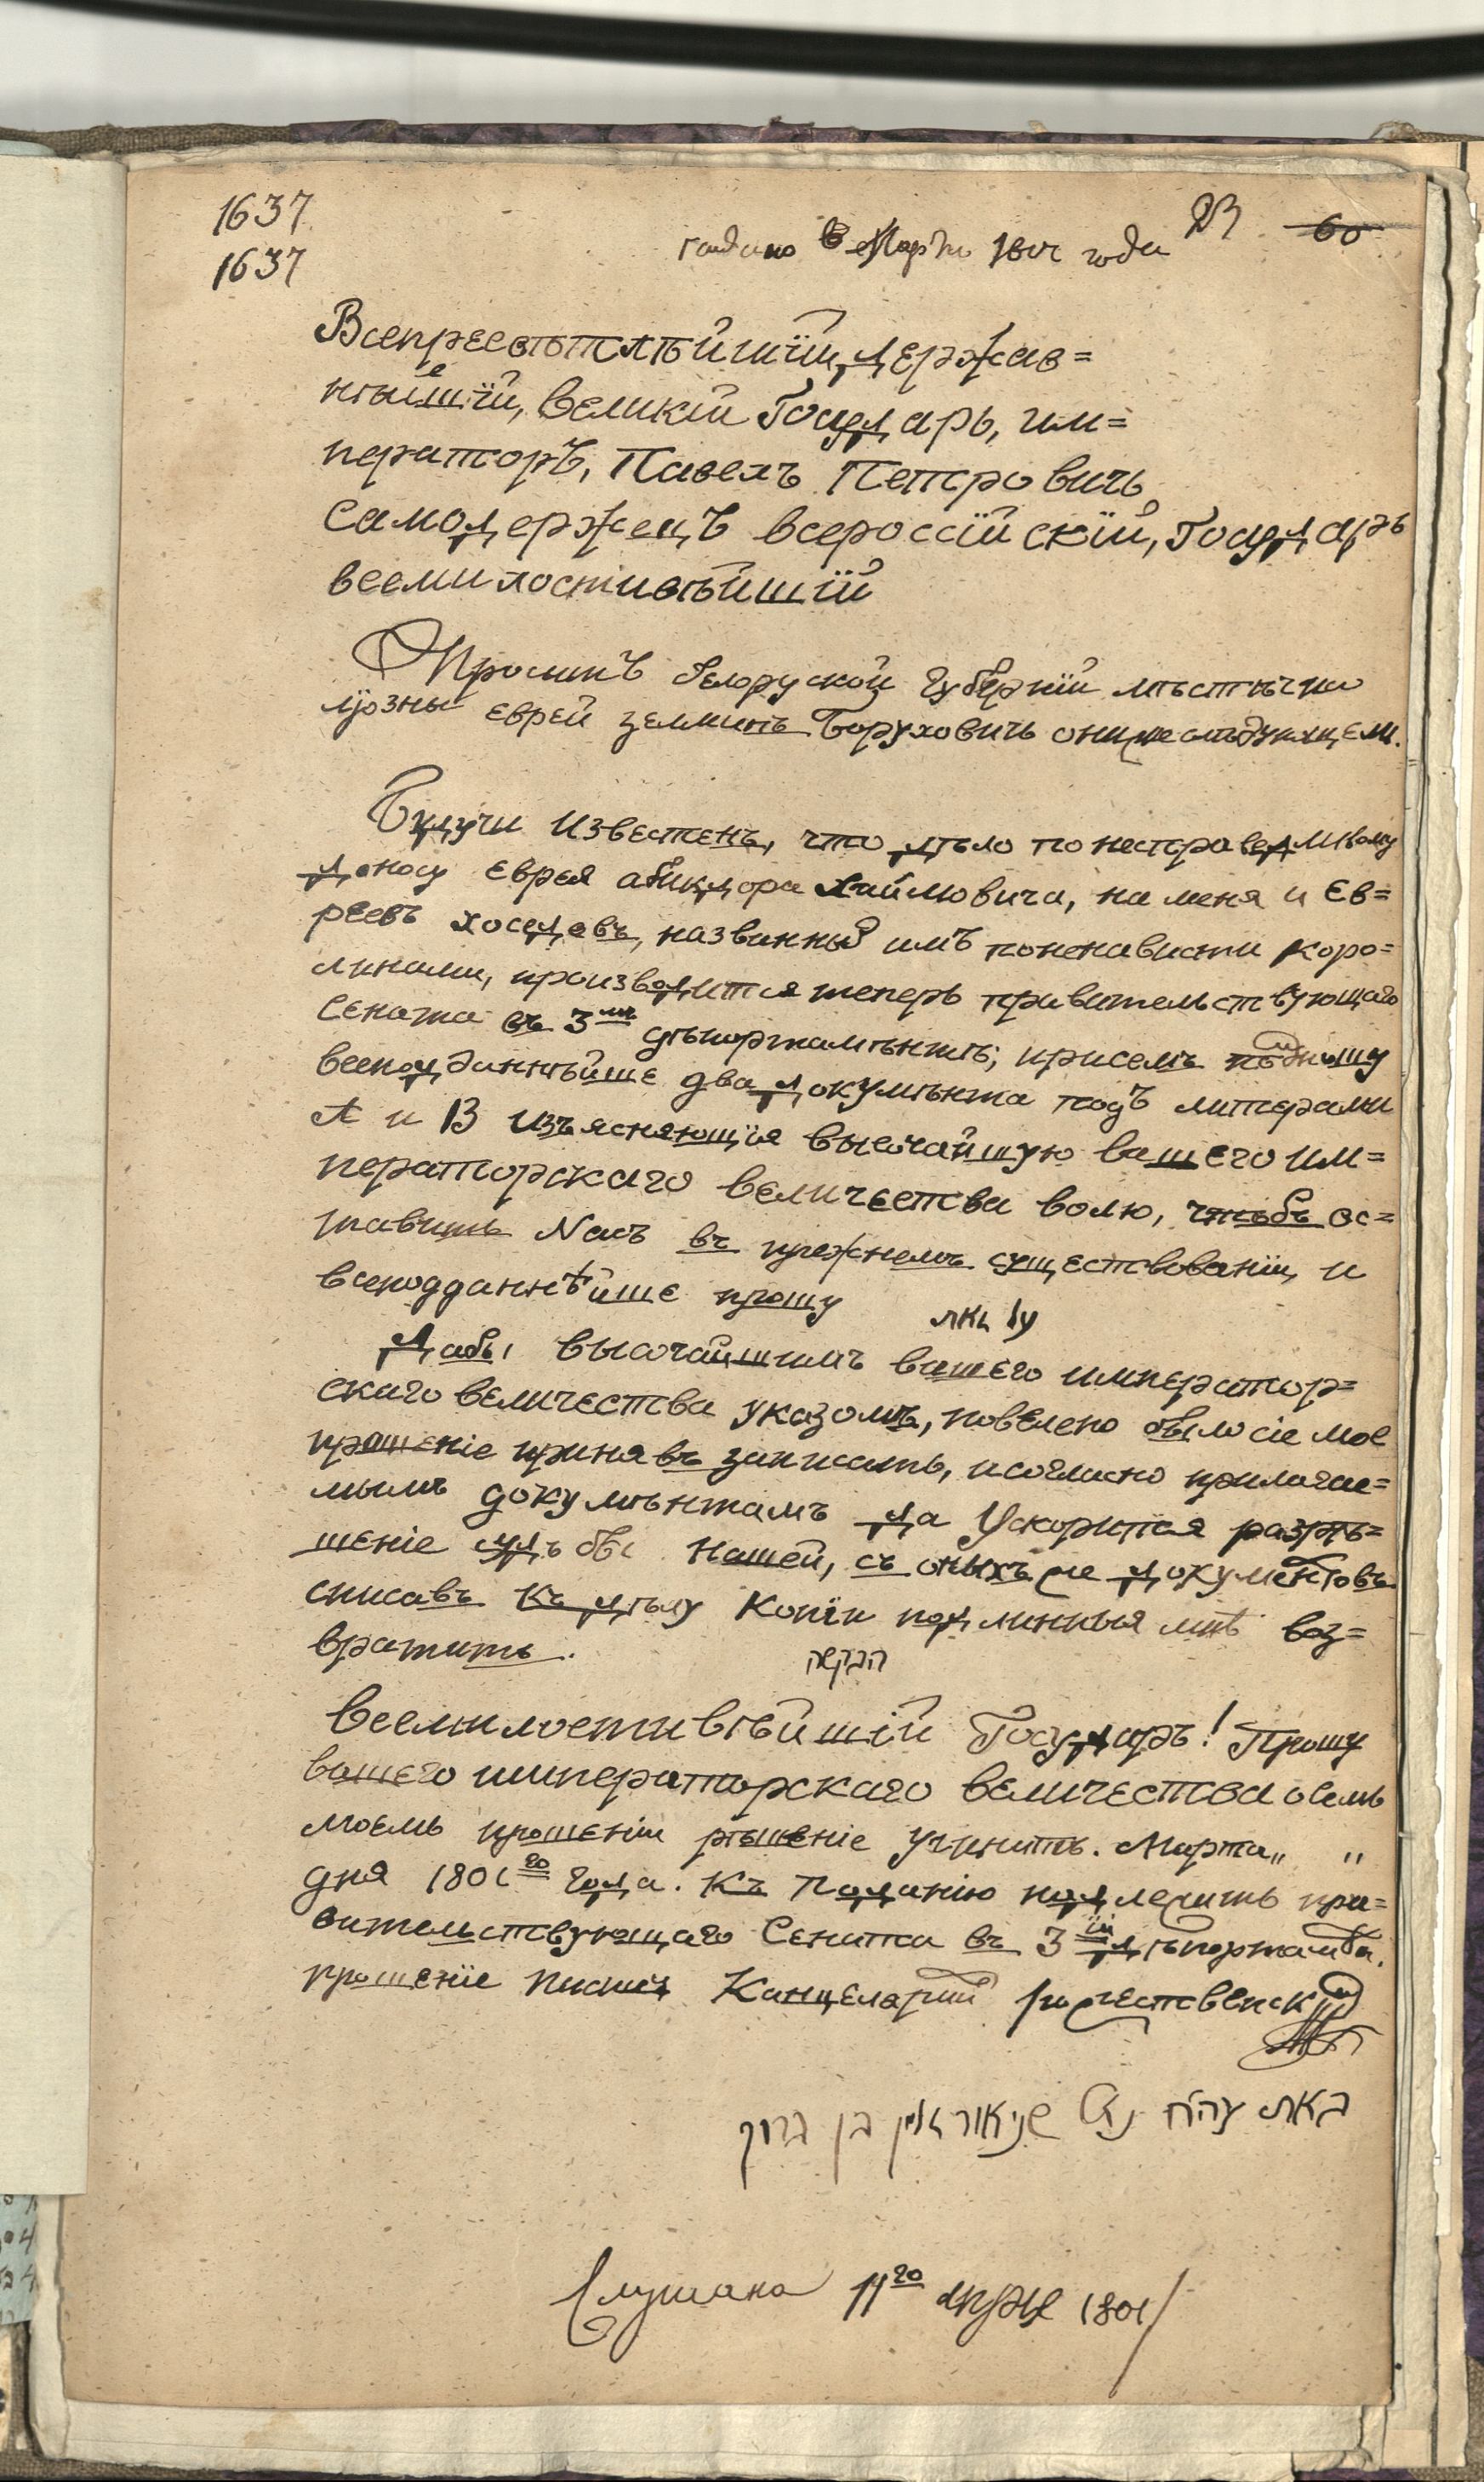 1637
1637
60
Марта 1801 года
Всепресветлѣйшїй, держав=
нѣйшїй, великїй Государь, им=
ператоръ, Павелъ Петровичь
самодержецъ всероссїйскїй, Государь
всемилостивѣйшїй
Проситъ белоруской губернїи мѣстечка
лїозны еврей зелминъ Боруховичь онижеслѣдующемъ.
Будучи известенъ, что дѣло по несправедливому
доносу еврея абикдора хаймовича, на меня и ев=
реевъ хоседовъ, названный имъ поненависти каро=
линами, производится теперь правительствующаго
Сената въ 3мъ дѣпортамѣнтѣ; присемъ подношу
всеподданнѣйше два докумѣнта подъ литерами
А и В изъясняющїя высочайшую вашего им=
ператорскаго величества волю, чтобъ ос=
тавить насъ въ прежнемъ существованїи, и
всеподданнѣйше прошу
Дабы высочайшимъ вашего император=
скаго величества указомъ, повелено было сїе мое
прошенїе принявъ записать, и согласно прилагае=
мымъ докумѣнтамъ да ускорится разрѣ=
шенїе судьбы нашей, съ оныхъ же документовъ
списавъ къ дѣлу копїи подлинныя мнѣ воз=
вратить.
הבקשה
всемилостивѣйшїй Государь! Прошу
вашего императорскаго величества осемъ
моемъ прошенїи рѣшенїе учинить. Марта „ „
дня 1801го года. Къ поданїю подлежитъ пра=
вительствующаго Сената въ 3й дѣпортамен.
прошенїе писалъ Канцеляристъ рожественскїй
באתי עה״ח נאו׳ שניאור זלמן בן ברוך
Слушано 11го апрѣля 1801